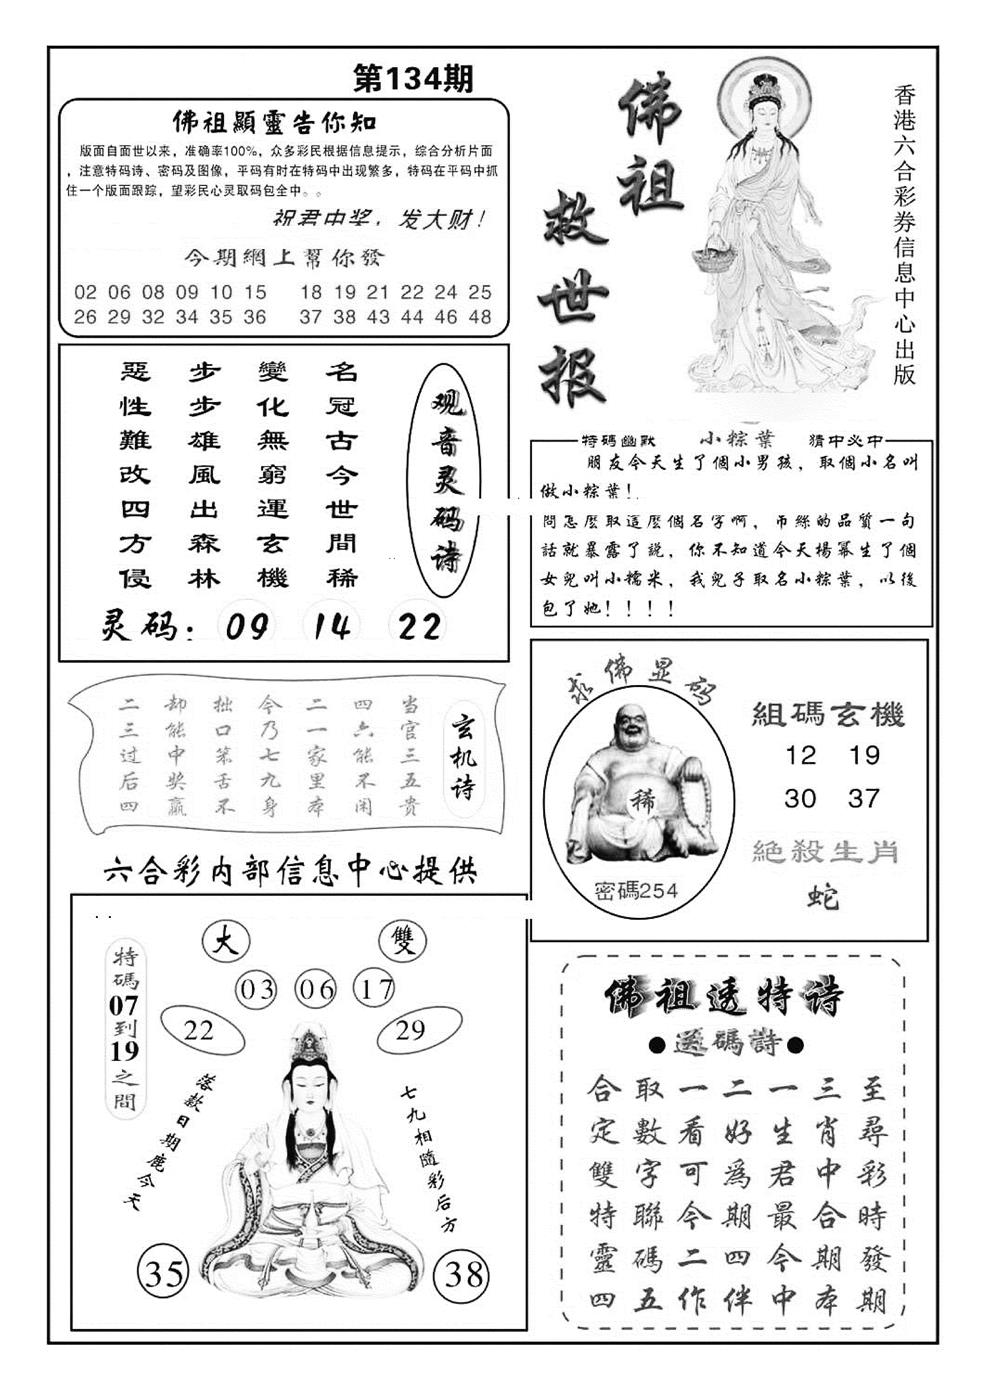 第134期
佛祖顯靈告你知
版面自面世以来，准确率100%，众多彩民根据信息提示，综合分析片面
，注意特码诗、密码及图像，平码有时在特码中出现繁多，特码在平码中抓
住一个版面跟踪，望彩民心灵取码包全中。。
祝君中奖，发大财！
今期網上幫你發
02 06 08 09 10 15 18 19 21 22 24 25
26 29 32 34 35 36 37 38 43 44 46 48
佛祖
救世报
香港六合彩券信息中心出版
观音灵码诗
名冠古今世間稀
變化無窮運玄機
步步雄風出森林
惡性難改四方侵
灵码：09 14 22
特碼幽默 小粽葉 猜中必中
朋友今天生了個小男孩，取個小名叫
做小粽葉！
問怎麼取這麼個名字啊，吊絲的品質一句
話就暴露了説，你不知道今天楊冪生了個
女兒叫小糯米，我兒子取名小粽葉，以後
包了她！！！！
玄机诗
当官三五贵
四六能不闲
二一家里本
今乃七九身
拙口笨舌不
却能中奖赢
二三过后四
六合彩内部信息中心提供
求佛显码
稀
密碼254
組碼玄機
12 19
30 37
絕殺生肖
蛇
大 雙
03 06 17
22 29
特碼07到19之間
落款日期鹿今天
七九相隨彩后方
35 38
佛祖透特诗
●送碼詩●
至尋彩時發期
三肖中合期本
一生君最今中
二好為期四伴
一看可今二作
取數字聯碼五
合定雙特靈四